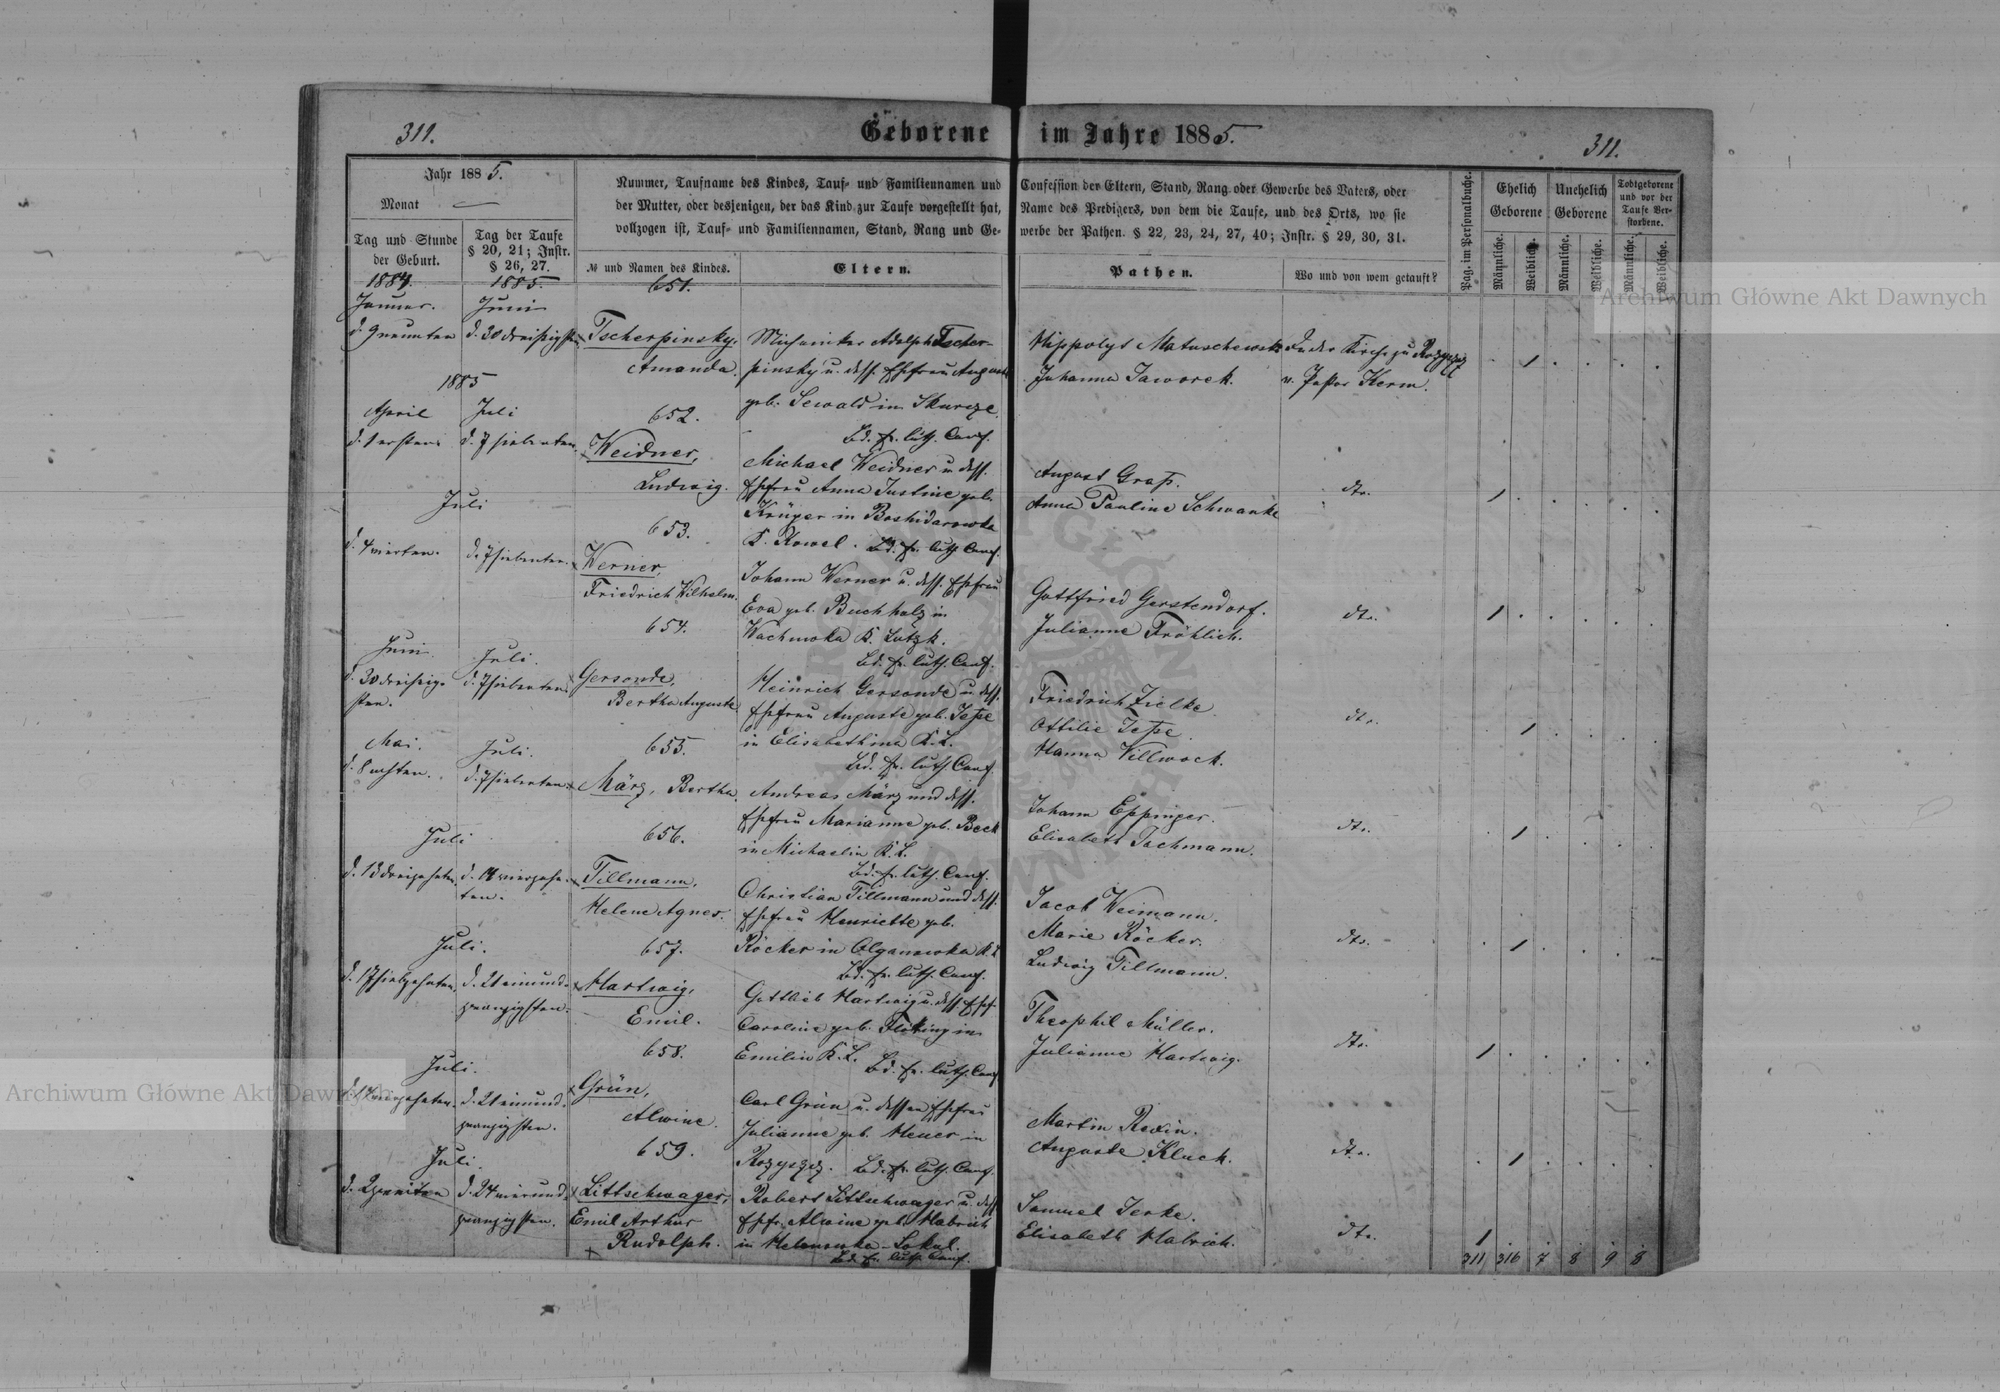 311.
Geborene im Jahre 1885.
311.
Jahr 1885.
Monat
Tag und Stunde
der Geburt.
Tag der Taufe
§ 20, 21; Instr.
§ 26, 27.
Nummer, Taufname des Kindes, Tauf- und Familiennamen und
der Mutter, oder desjenigen, der das Kind zur Taufe vorgestellt hat,
vollzogen ist, Tauf- und Familiennamen, Stand, Rang und Ge-
№ und Namen des Kindes.
Eltern.
Confession der Eltern, Stand, Rang oder Gewerbe des Vaters, oder
Name des Predigers, von dem die Taufe, und des Orts, wo sie
werbe der Pathen. § 22, 23, 24, 27, 40; Instr. § 29, 30, 31.
Pathen.
Wo und von wem getauft?
Pag. im Personalbuche.
Ehelich
Geborene
Unehelich
Geborene
Todtgeborene
und vor der
Taufe Ver-
storbene.
Männliche.
Weibliche.
Männliche.
Weibliche.
Männliche.
Weibliche.
1884.
Januar.
d. 9 neunten
1885.
Juni
d. 30 dreißigsten
651.
Tscherpinsky,
Amanda.
Adolph Tscher-
pinsky u. dess. Ehefrau Auguste
geb. Sewald in Skurcze.
Bd. ev. luth. Conf.
Hippolyt Matuschewsk
Johanna Jaworek.
In der Kirche zu Rozyszcz
v. Pastor Kerm.
1885
April
d. 1 ersten
Juli
d. 7 siebenten.
652.
Weidner,
Ludwig.
Michael Weidner u. dess.
Ehefrau Anna Justine geb.
Krüger in Boshidarowka
K. Kowel. Bd. ev. luth. Conf.
August Graß.
Anna Pauline Schwanke
dto.
Juli
d. 4 vierten.
d. 7 siebenten.
653.
Werner,
Friedrich Wilhelm.
Johann Werner u. dess. Ehefrau
Eva geb. Buchholz in
K. Lutzk.
Bd. ev. luth. Conf.
Gottfried Gerstendorf.
Julianne Fröhlich.
dto.
Juni
d. 30 dreißig-
sten.
Juli.
d. 7 siebenten.
654.
Gersonde,
Bertha Auguste
Heinrich Gersonde u. dess.
Ehefrau Auguste geb. Jeße
in Elisabethina K. L.
Bd. ev. luth. Conf.
Friedrich Zielke
Ottilie Jeße.
Hanna Villwock.
dto.
Mai.
d. 8 achten.
Juli.
d. 7 siebenten.
655.
März, Bertha.
Andreas März und dess.
Ehefrau Marianne geb. Beck
in Michaelin K. L.
Bd. ev. luth. Conf.
Johann Eppinger.
Elisabeth Tschmann.
dto.
Juli
d. 13 dreizehnten.
d. 14 vierzehn-
ten.
656.
Tillmann,
Helene Agnes.
Christian Tillmann und dess.
Ehefrau Henriette geb.
Röcker in Olganowka K. L
Bd. ev. luth. Conf.
Jacob Weimann.
Marie Röcker.
Ludwig Tillmann.
dto.
Juli.
d. 17 siebzehnten.
d. 21 einund-
zwanzigsten.
657.
Hartwig,
Emil.
Gottlieb Hartwig u. dess. Ehefr.
Caroline geb. in
Emilin K. L. Bd. ev. luth. Conf.
Theophil Müller.
Julianne Hartwig.
dto.
Juli.
d. 14 vierzehnten.
d. 21 einund-
zwanzigsten.
658.
Grün,
Alwine.
Carl Grün u. dessen Ehefrau
Julianne geb. Heuer in
Rozyszcz. Bd. ev. luth. Conf.
Martin Rexin.
Auguste Kluck.
dto.
Juli.
d. 2 zweiten
d. 24 vierund-
zwanzigsten.
659.
Littschwager,
Emil Arthur
Rudolph.
Robert Littschwager u. dess.
Ehefr. Alwine geb. Habrich
in
Bd. ev. luth. Conf.
Samuel Jerke.
Elisabeth Habrich.
dto.
311 316 7 8 9 8
Archiwum Główne Akt Dawnych
Archiwum Główne Akt Dawnych